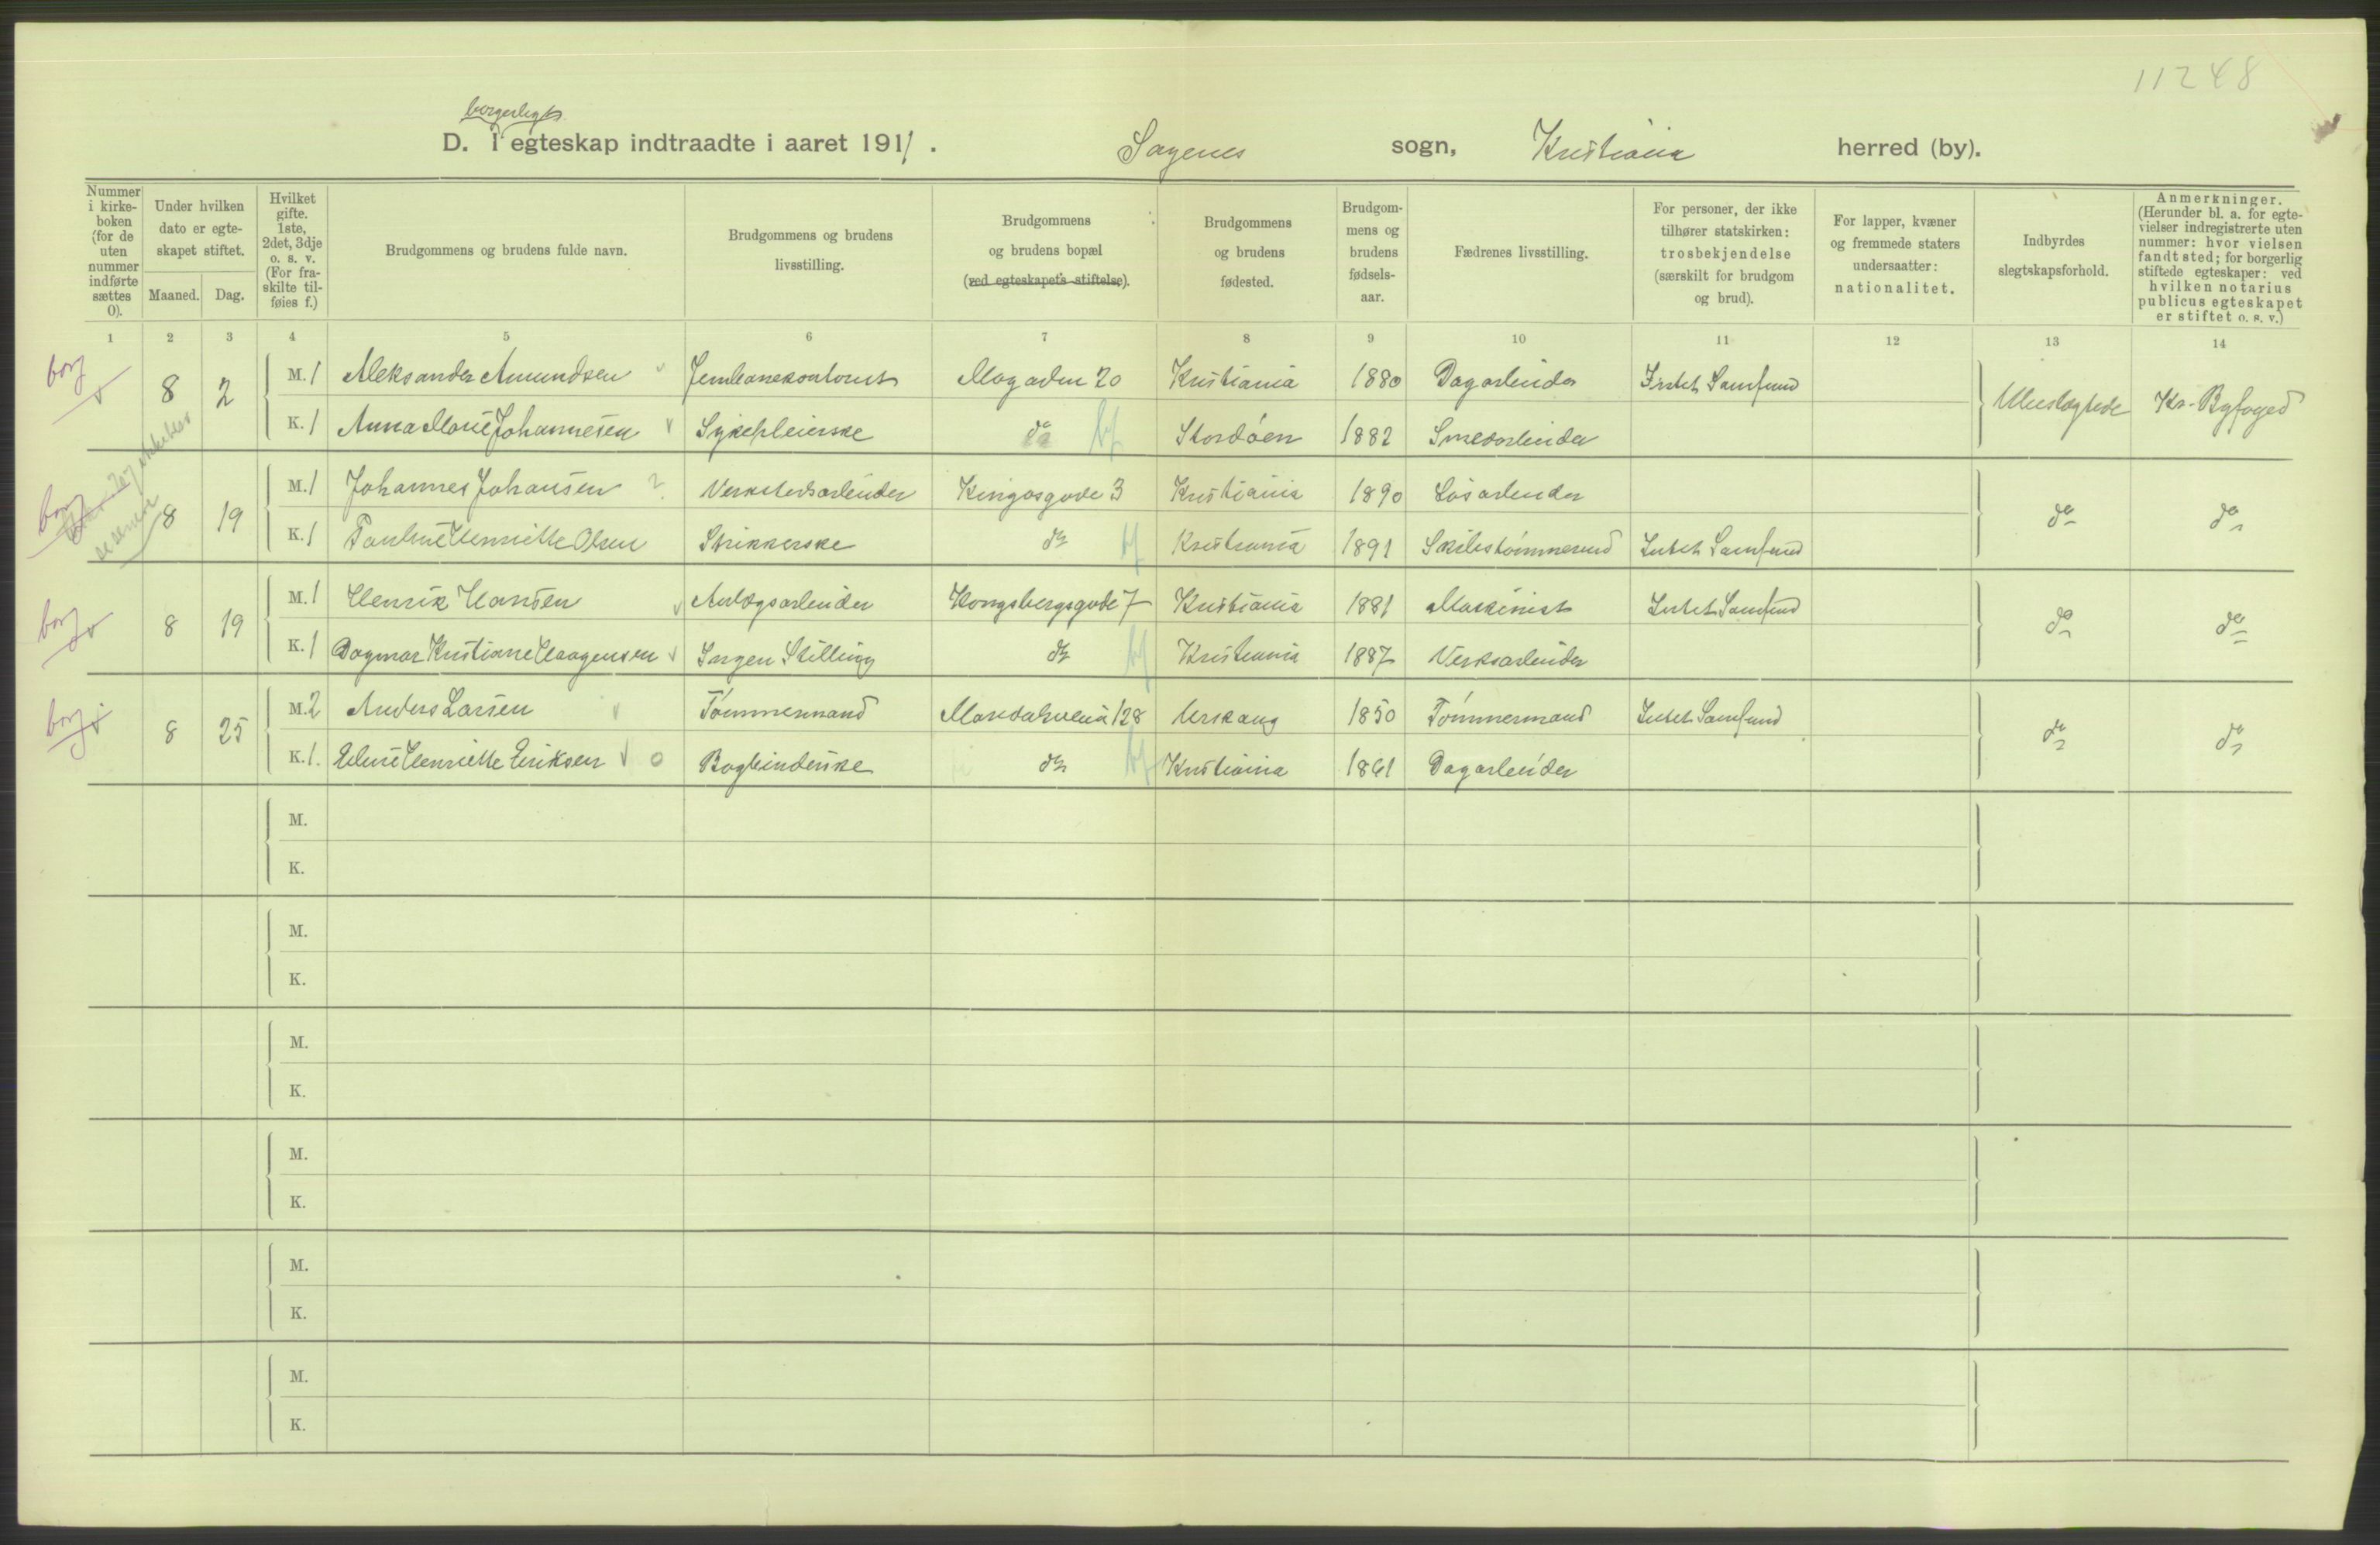 11248
borgerligt
D. I egteskap indtraadte i aaret 1911. Sagenes sogn, Kristiania herred (by).
Nummer i kirkeboken (for de uten nummer indførte sættes 0).
Under hvilken dato er egteskapet stiftet.
Maaned. Dag.
Hvilket gifte. 1ste, 2det, 3dje o. s. v. (For fraskilte tilføies f.)
Brudgommens og brudens fulde navn.
Brudgommens og brudens livsstilling.
Brudgommens og brudens bopæl (ved egteskapets stiftelse).
Brudgommens og brudens fødested.
Brudgommens og brudens fødselsaar.
Fædrenes livsstilling.
For personer, der ikke tilhører statskirken: trosbekjendelse (særskilt for brudgom og brud).
For lapper, kvæner og fremmede staters undersaatter: nationalitet.
Indbyrdes slegtskapsforhold.
Anmerkninger. (Herunder bl. a. for egtevielser indregistrerte uten nummer: hvor vielsen fandt sted; for borgerlig stiftede egteskaper: ved hvilken notarius publicus egteskapet er stiftet o. s. v.)
1 2 3 4 5 6 7 8 9 10 11 12 13 14
borg 8 2 M. 1 Aleksander Amundsen Jernbanekontorist Mogaden 20 Kristiania 1880 Dagarbeider Intet Samfund Ubeslægtede Kr. Byfoged
K. 1 Anna Marie Johannesen Sykepleierske do bf Stordøen 1882 Smedarbeider
borg 8 19 M. 1 Johannes Johansen ? Verkstedsarbeider Kingosgade 3 Kristiania 1890 Løsarbeider do do
K. 1 Pauline Henriette Olsen Strikkerske do bf Kristiania 1891 Skibstømmermd Intet Samfund
borg 8 19 M. 1 Henrik Hansen Anlægsarbeider Kongsbergsgade 7 Kristiania 1881 Maskinist Intet Samfund do do
K. 1 Dagmar Kristiane Haagensen Ingen Stilling do bf Kristiania 1887 Verksarbeider
borg 8 25 M. 2 Anders Larsen Tømmermand Maridalsveien 128 Urskaug 1850 Tømmermand Intet Samfund do do
K. 1. Eline Henriette Eriksen o Bogbinderske do bf Kristiania 1861 Dagarbeider
M.
K.
M.
K.
M.
K.
M.
K.
M.
K.
M.
K.